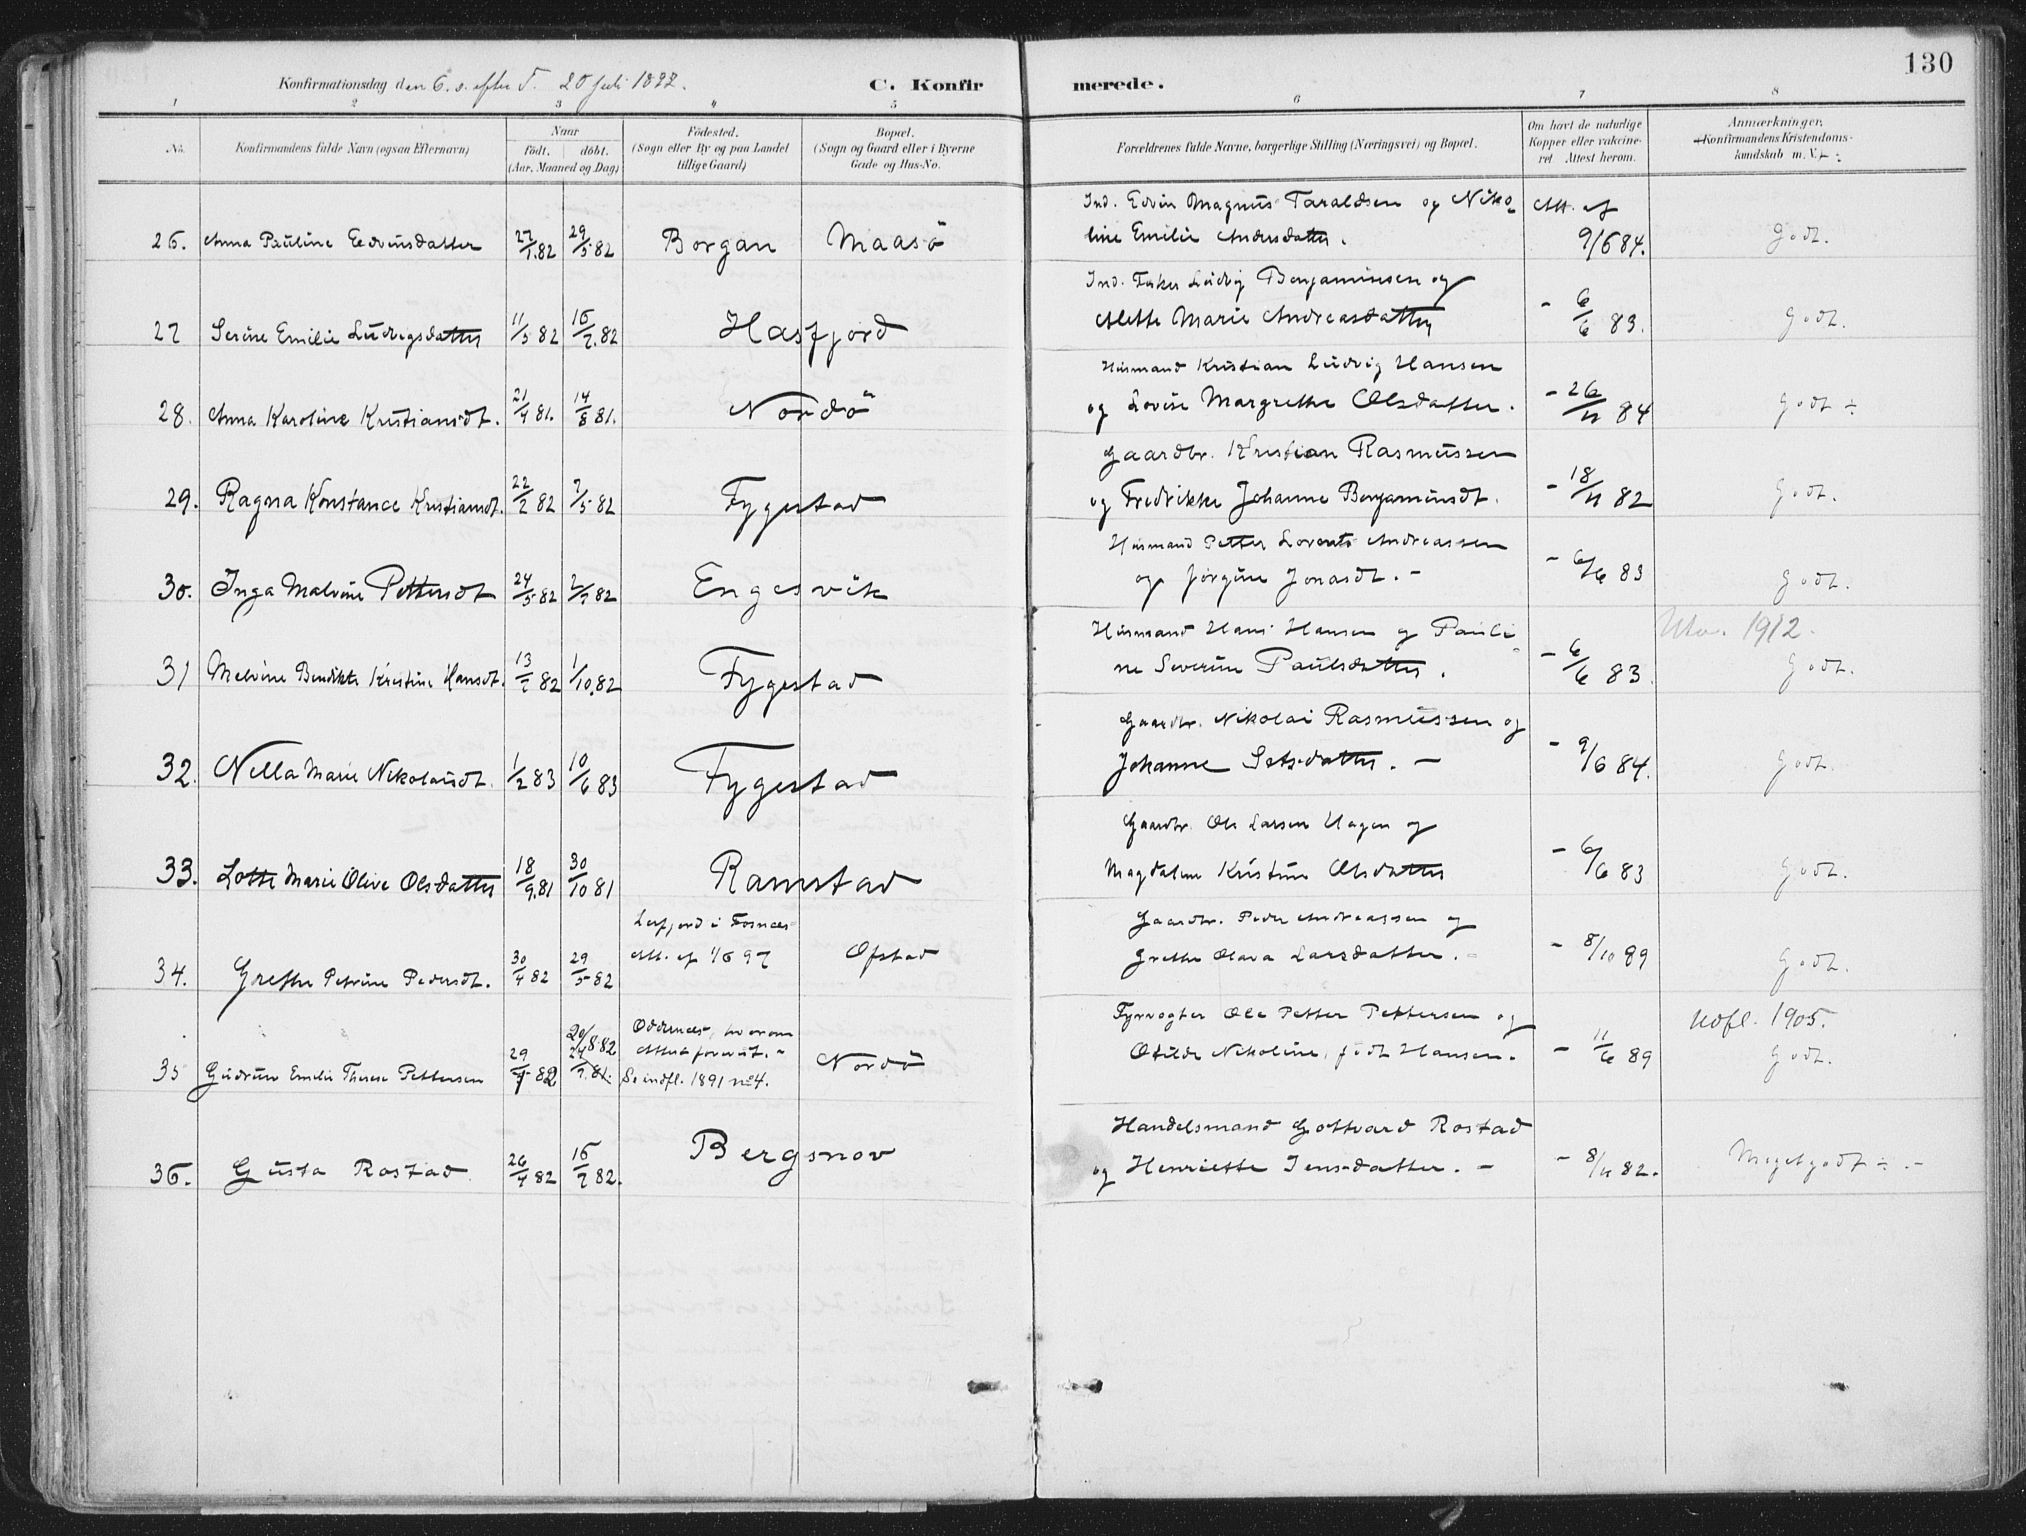 130
Konfirmationsdag den 6. s. efter T. 20 Juli 1897.
C. Konfirmerede.
1 2 3 4 5 6 7 8
No. Konfirmandens fulde Navn (ogsaa Efternavn)
Naar født. døbt. (Aar, Maaned og Dag)
Fødested. (Sogn eller By og paa Landet tillige Gaard)
Bopæl. (Sogn og Gaard eller i Byerne Gade og Hus-No.
Forældrenes fulde Navne, borgerlige Stilling (Næringsvei) og Bopæl.
Om havt de naturlige Kopper eller vakcineret. Attest herom.
Anmærkninger. (Konfirmandens Kristendomskundskab m. V.)
26. Anna Pauline Edvinsdatter 27/1.82 29/5 82 Borgan Maasö
Ind. Edvin Magnus Taraldsen og Niko-
line Emilie Andersdatter.
Att. af 9/6 84. Godt.
27 Serine Emilie Ludvigsdatter 11/5 82 16/7.82 Hasfjord
Ind. Fisker Ludvig Benjaminsen og
Alette Marie Andreasdatter
- 6/6 83. Godt.
28. Anna Karoline Kristiansdt. 21/4 81. 14/8 81. Nordö
Husmand Kristian Ludvig Hansen
og Lovise Margrethe Olsdatter.
- 26/11 84 Godt ÷
29. Ragna Konstance Kristiansdt. 22/2 82 7/5 82 Fygestad
Gaardbr. Kristian Rasmussen
og Fredrikke Johanne Benjaminsdt.
- 18/11 82 Godt.
30. Inga Malvine Pettersdt 24/5 82 2/7 82 Engesvik
Husmand Petter Lorents Andreassen
og Jörgine Jonasdt. -
- 6/6 83 Godt.
31 Melvine Bendikte Kristine Hansdt. 13/7 82 1/10.82 Fygestad
Husmand Hans Hansen og Pauli-
ne Severine Paulsdatter.
- 6/6 83. Utv. 1912. Godt.
32. Nella Marie Nikolaisdt. 1/2 83 10/6 83 Fygestad
Gaardbr. Nikolai Rasmussen og
Johanne Setsdatter. -
- 9/6 84. Godt.
33. Lotte Marie Olive Olsdatter 18/9.81 30/10 81 Ramstad
Gaardbr. Ole Larsen Hagen og
Magdalene Kristine Olsdatter
- 6/6 83 Godt.
34. Grethe Petrine Pedersdt. 30/4 82 29/5 82
Att. af 1/6 97 Ofstad
Gaardbr. Peder Andreassen og
Grethe Olava Larsdatter. -
- 8/10 89 Godt.
35 Gudrun Emilie Therese Pettersen 29/4 82 20/8 82
24/7.81.
Oddernes, hvorom
Attest foreviist. -
Se indfl. 1891 no 4. Nordö
Fyrvogter Ole Petter Pettersen og
Otilde Nikoline, født Hansen.
- 11/6 89 Udfl. 1905. Godt.
36. Gusta Rostad 26/4 82 16/7 82. Bergsnov
Handelsmand Gottvard Rostad
og Henriette Jensdatter. -
- 8/11 82. Meget godt ÷. -